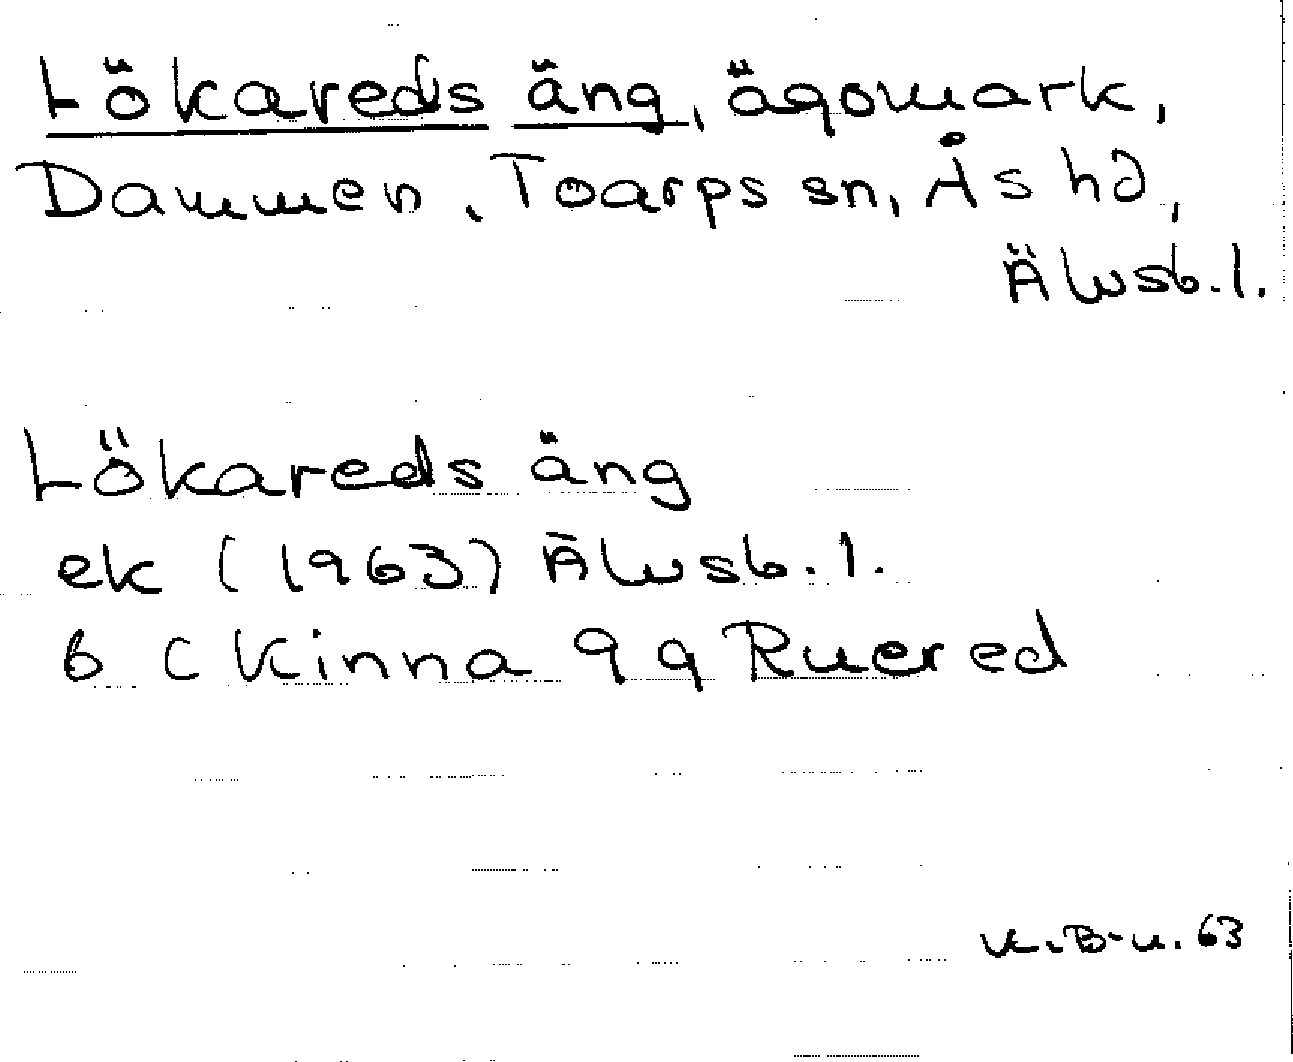 Lökareds äng, ägomark,
Dammen, Toarps sn, Ås hd,
Älvsb. l.
Lökareds äng
ek (1963) Älvsb. l.
6 C Kinna 9 q Ruered
K. B-n. 63